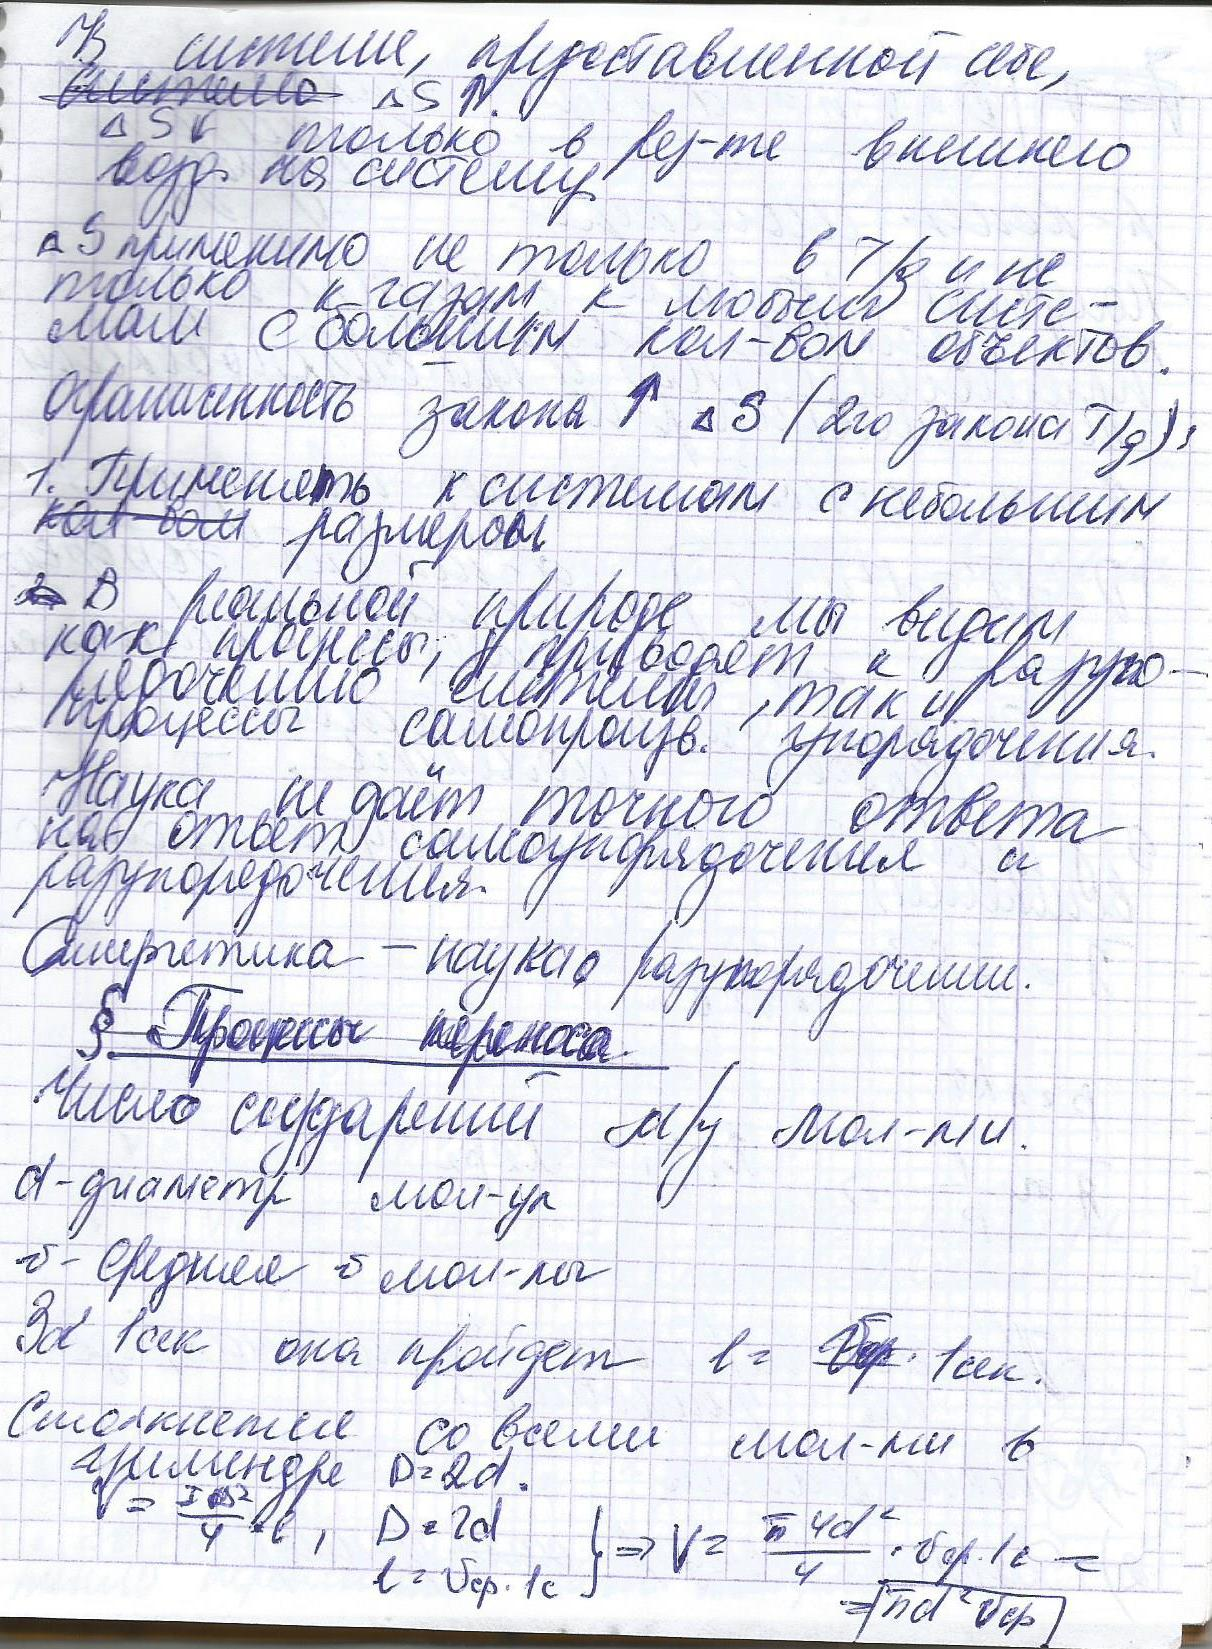 В системе, предоставленной себе,
система ΔS↑.
ΔS↓ только в рез-те внешнего
возд. на систему
ΔS применимо не только в Т/д и не
только к газам к любым систе-
мам с большим кол-вом объектов.
Ограниченность закона ↑ ΔS (2го закона Т/д):
1. Применять к системам с небольшим
кол-вом размером
2. В реальной природе мы видим
как процессы, приводят к разупо-
рядочению системы, так и
процессы самопроизв. упорядочения.
Наука не даёт точного ответа
на ответ самоупорядочения и
разупорядочения.
Синергетика – наука о разупорядочении.
§ Процессы переноса.
Число соударений м/у мол-ми.
d - диаметр мол-ул
υ - средняя υ мол-лы
За 1сек она пройдет l = υср · 1сек.
Столкнется со всеми мол-ми в
цилиндре D=2d.
V = πD²/4 · l, D=2d
l = υср · 1с } => V = π4d²/4 · υср · 1с =
= πd²υср